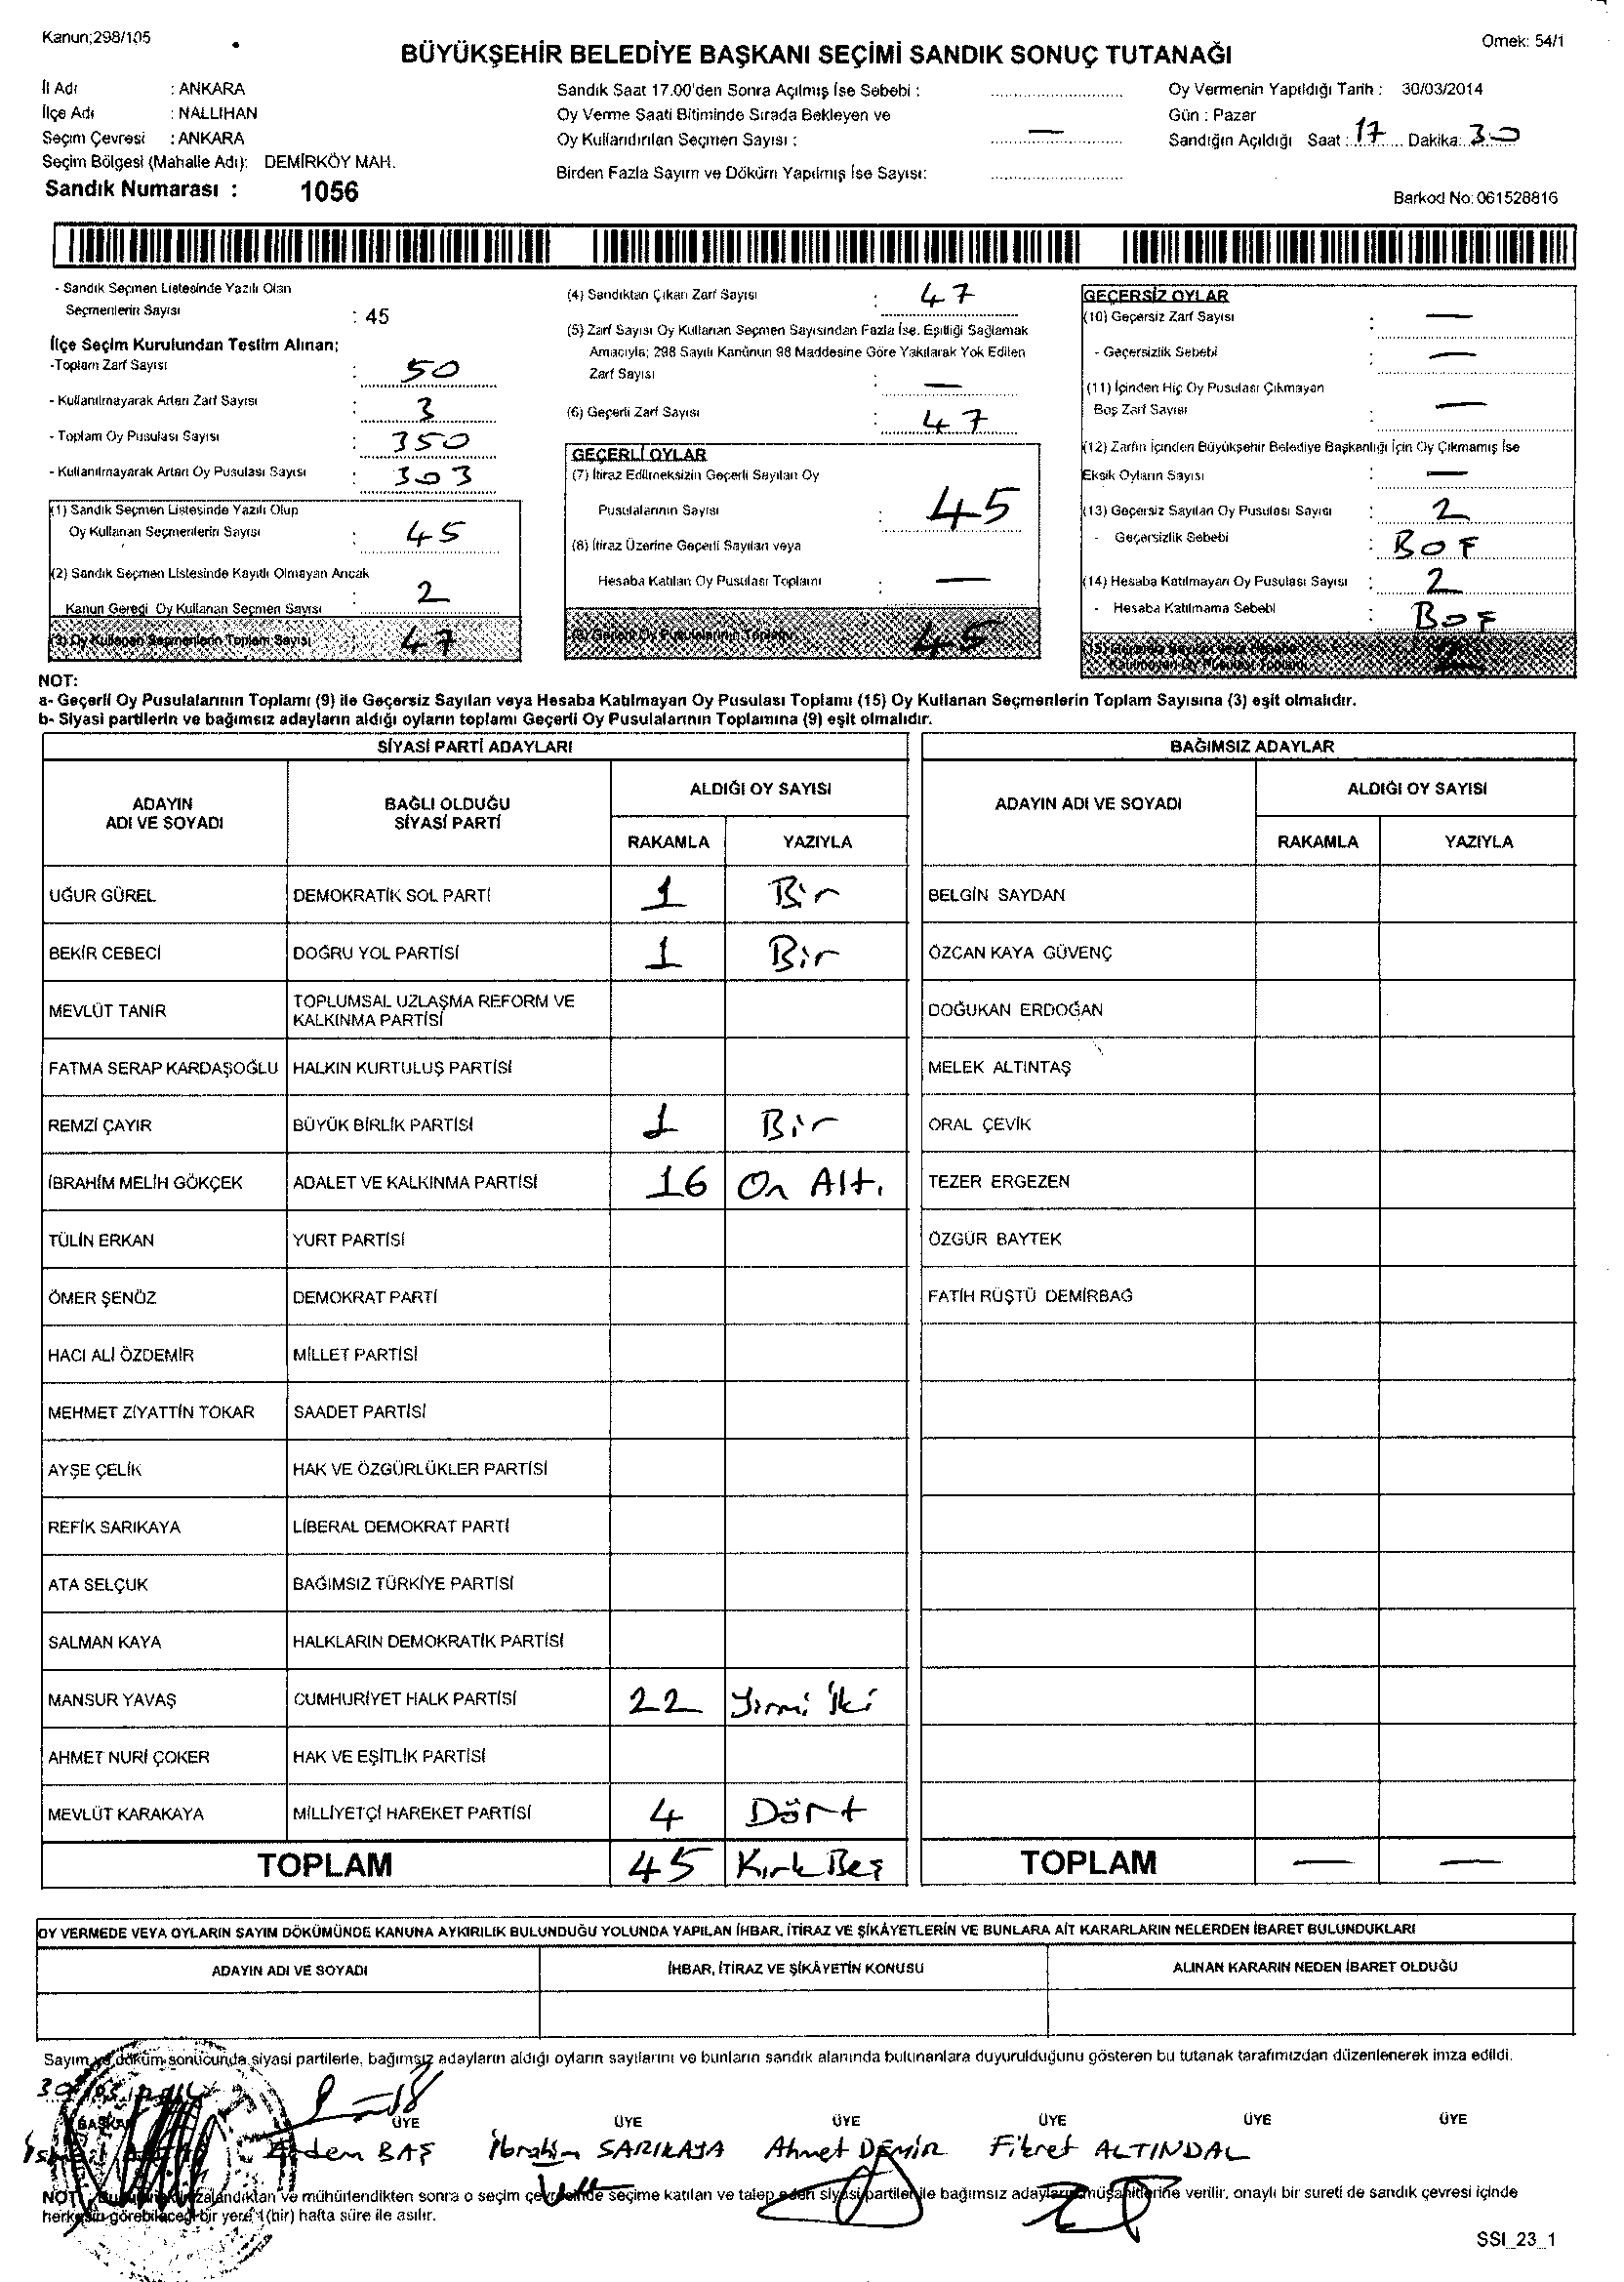 Kanun;298/105
Örnek: 54/1
BÜYÜKŞEHİR BELEDİYE BAŞKANI SEÇİMİ SANDIK SONUÇ TUTANAĞI
İl Adı : ANKARA
İlçe Adı : NALLIHAN
Seçim Çevresi : ANKARA
Seçim Bölgesi (Mahalle Adı): DEMİRKÖY MAH.
Sandık Numarası : 1056
Sandık Saat 17.00'den Sonra Açılmış İse Sebebi :
Oy Verme Saati Bitiminde Sırada Bekleyen ve
Oy Kullandırılan Seçmen Sayısı : —
Birden Fazla Sayım ve Döküm Yapılmış İse Sayısı:
Oy Vermenin Yapıldığı Tarih : 30/03/2014
Gün : Pazar
Sandığın Açıldığı Saat : 17 Dakika: 30
Barkod No: 061528816
- Sandık Seçmen Listesinde Yazılı Olan
Seçmenlerin Sayısı : 45
İlçe Seçim Kurulundan Teslim Alınan;
-Toplam Zarf Sayısı : 50
- Kullanılmayarak Artan Zarf Sayısı : 3
- Toplam Oy Pusulası Sayısı : 350
- Kullanılmayarak Artan Oy Pusulası Sayısı : 303
(1) Sandık Seçmen Listesinde Yazılı Olup
Oy Kullanan Seçmenlerin Sayısı : 45
(2) Sandık Seçmen Listesinde Kayıtlı Olmayan Ancak
Kanun Gereği Oy Kullanan Seçmen Sayısı : 2
(3) Oy Kullanan Seçmenlerin Toplam Sayısı : 47
(4) Sandıktan Çıkan Zarf Sayısı : 47
(5) Zarf Sayısı Oy Kullanan Seçmen Sayısından Fazla İse, Eşitliği Sağlamak
Amacıyla; 298 Sayılı Kanunun 98 Maddesine Göre Yakılarak Yok Edilen
Zarf Sayısı : —
(6) Geçerli Zarf Sayısı : 47
GEÇERLİ OYLAR
(7) İtiraz Edilmeksizin Geçerli Sayılan Oy
Pusulalarının Sayısı : 45
(8) İtiraz Üzerine Geçerli Sayılan veya
Hesaba Katılan Oy Pusulası Toplamı : —
(9) Geçerli Oy Pusulalarının Toplamı 45
GEÇERSİZ OYLAR
(10) Geçersiz Zarf Sayısı : —
- Geçersizlik Sebebi : —
(11) İçinden Hiç Oy Pusulası Çıkmayan
Boş Zarf Sayısı : —
(12) Zarfın İçinden Büyükşehir Belediye Başkanlığı İçin Oy Çıkmamış İse
Eksik Oyların Sayısı : —
(13) Geçersiz Sayılan Oy Pusulası Sayısı : 2
- Geçersizlik Sebebi : BOF
(14) Hesaba Katılmayan Oy Pusulası Sayısı : 2
- Hesaba Katılmama Sebebi : BOF
(15) Geçersiz Sayılan veya Hesaba
Katılmayan Oy Pusulası Toplamı 2
NOT:
a- Geçerli Oy Pusulalarının Toplamı (9) ile Geçersiz Sayılan veya Hesaba Katılmayan Oy Pusulası Toplamı (15) Oy Kullanan Seçmenlerin Toplam Sayısına (3) eşit olmalıdır.
b- Siyasi partilerin ve bağımsız adayların aldığı oyların toplamı Geçerli Oy Pusulalarının Toplamına (9) eşit olmalıdır.
SİYASİ PARTİ ADAYLARI
ADAYIN ADI VE SOYADI
BAĞLI OLDUĞU SİYASİ PARTİ
ALDIĞI OY SAYISI
RAKAMLA YAZIYLA
UĞUR GÜREL DEMOKRATİK SOL PARTİ 1 Bir
BEKİR CEBECİ DOĞRU YOL PARTİSİ 1 Bir
MEVLÜT TANIR TOPLUMSAL UZLAŞMA REFORM VE
KALKINMA PARTİSİ
FATMA SERAP KARDAŞOĞLU HALKIN KURTULUŞ PARTİSİ
REMZİ ÇAYIR BÜYÜK BİRLİK PARTİSİ 1 Bir
İBRAHİM MELİH GÖKÇEK ADALET VE KALKINMA PARTİSİ 16 On Altı
TÜLİN ERKAN YURT PARTİSİ
ÖMER ŞENÖZ DEMOKRAT PARTİ
HACI ALİ ÖZDEMİR MİLLET PARTİSİ
MEHMET ZİYATTİN TOKAR SAADET PARTİSİ
AYŞE ÇELİK HAK VE ÖZGÜRLÜKLER PARTİSİ
REFİK SARIKAYA LİBERAL DEMOKRAT PARTİ
ATA SELÇUK BAĞIMSIZ TÜRKİYE PARTİSİ
SALMAN KAYA HALKLARIN DEMOKRATİK PARTİSİ
MANSUR YAVAŞ CUMHURİYET HALK PARTİSİ 22 Yirmi İki
AHMET NURİ ÇOKER HAK VE EŞİTLİK PARTİSİ
MEVLÜT KARAKAYA MİLLİYETÇİ HAREKET PARTİSİ 4 Dört
TOPLAM 45 Kırk Beş
BAĞIMSIZ ADAYLAR
ADAYIN ADI VE SOYADI
ALDIĞI OY SAYISI
RAKAMLA YAZIYLA
BELGİN SAYDAN
ÖZCAN KAYA GÜVENÇ
DOĞUKAN ERDOĞAN
MELEK ALTINTAŞ
ORAL ÇEVİK
TEZER ERGEZEN
ÖZGÜR BAYTEK
FATİH RÜŞTÜ DEMİRBAĞ
TOPLAM — —
OY VERMEDE VEYA OYLARIN SAYIM DÖKÜMÜNDE KANUNA AYKIRILIK BULUNDUĞU YOLUNDA YAPILAN İHBAR, İTİRAZ VE ŞİKÂYETLERİN VE BUNLARA AİT KARARLARIN NELERDEN İBARET BULUNDUKLARI
ADAYIN ADI VE SOYADI İHBAR, İTİRAZ VE ŞİKÂYETİN KONUSU ALINAN KARARIN NEDEN İBARET OLDUĞU
Sayım ve döküm sonucunda siyasi partilerle, bağımsız adayların aldığı oyların sayılarını ve bunların sandık alanında bulunanlara duyurulduğunu gösteren bu tutanak tarafımızdan düzenlenerek imza edildi.
30/03/2014
BAŞKAN ÜYE ÜYE ÜYE ÜYE ÜYE ÜYE
BAŞ İbrahim SARIKAYA Ahmet DEMİR Fikret ALTINDAL
NOT: Bu tutanak imzalandıktan ve mühürlendikten sonra o seçim çevresinde seçime katılan ve talep eden siyasi partiler ile bağımsız adayların müşahitlerine verilir, onaylı bir sureti de sandık çevresi içinde
herkesin görebileceği bir yere 1(bir) hafta süre ile asılır.
SSI_23_1